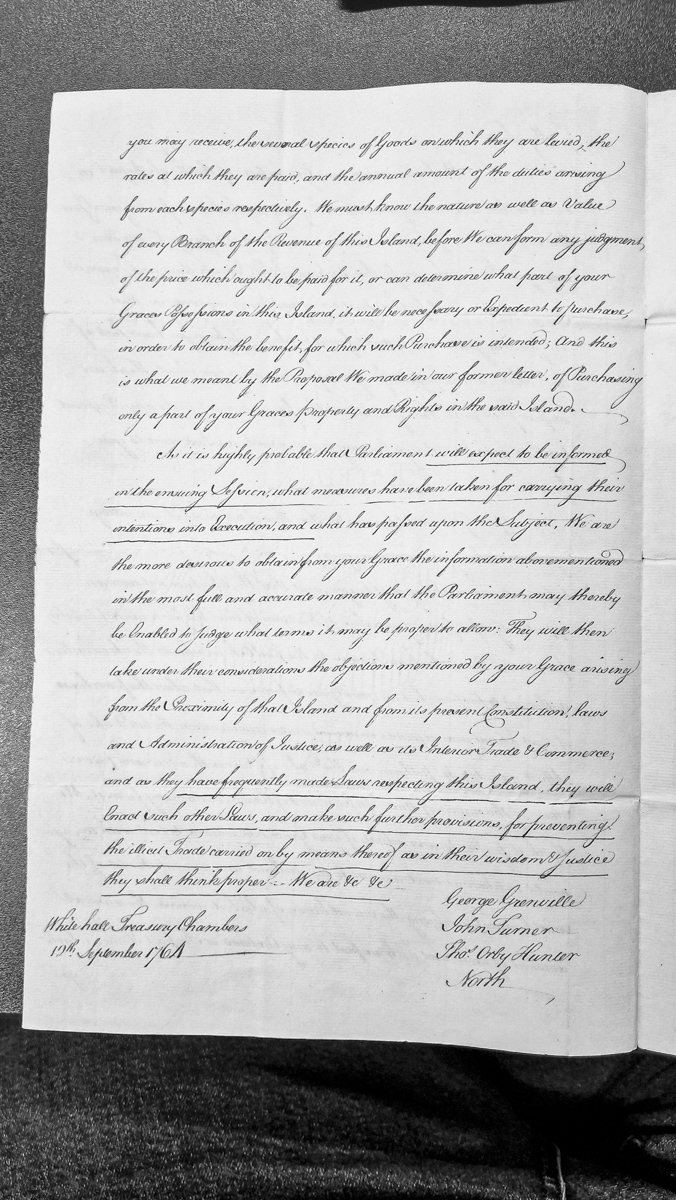 you may receive, the several species of Goods on which they are levied, the
rates at which they are paid, and the annual amount of the duties arising
from each species respectively. We must know the nature as well as Value
of every Branch of the Revenue of this Island, before We can form any judgment,
of the price which ought to be paid for it, or can determine what part of your
Graces Possessions in this Island, it will be necessary or Expedient to purchase,
in order to obtain the benefit, for which such Purchase is intended; And this
is what we meant by the Proposal We made in our former letter, of Purchasing
only a part of your Graces property and Rights in the said Island.
As it is highly probable that Parliament will expect to be informed
in the ensuing Session, what measures have been taken for carrying their
intentions into Execution, and what has passed upon the Subject, We are
the more desirous to obtain from your Grace the information abovementioned
in the most full and accurate manner that the Parliament may thereby
be Enabled to Judge what terms it may be proper to allow: They will then
take under their considerations the objections mentioned by your Grace arising
from the Proximity of that Island and from its present Constitution, laws
and Administration of Justice, as well as its Interior Trade & Commerce;
and as they have frequently made Laws respecting this Island, they will
Enact such other Laws, and make such further provisions, for preventing
the illicit Trade carried on by means thereof as in their wisdom & Justice
they shall think proper :- We are &c &c
George Grenville
Whitehall Treasury Chambers
John Turner
19th September 1764
Thos. Orby Hunter
North